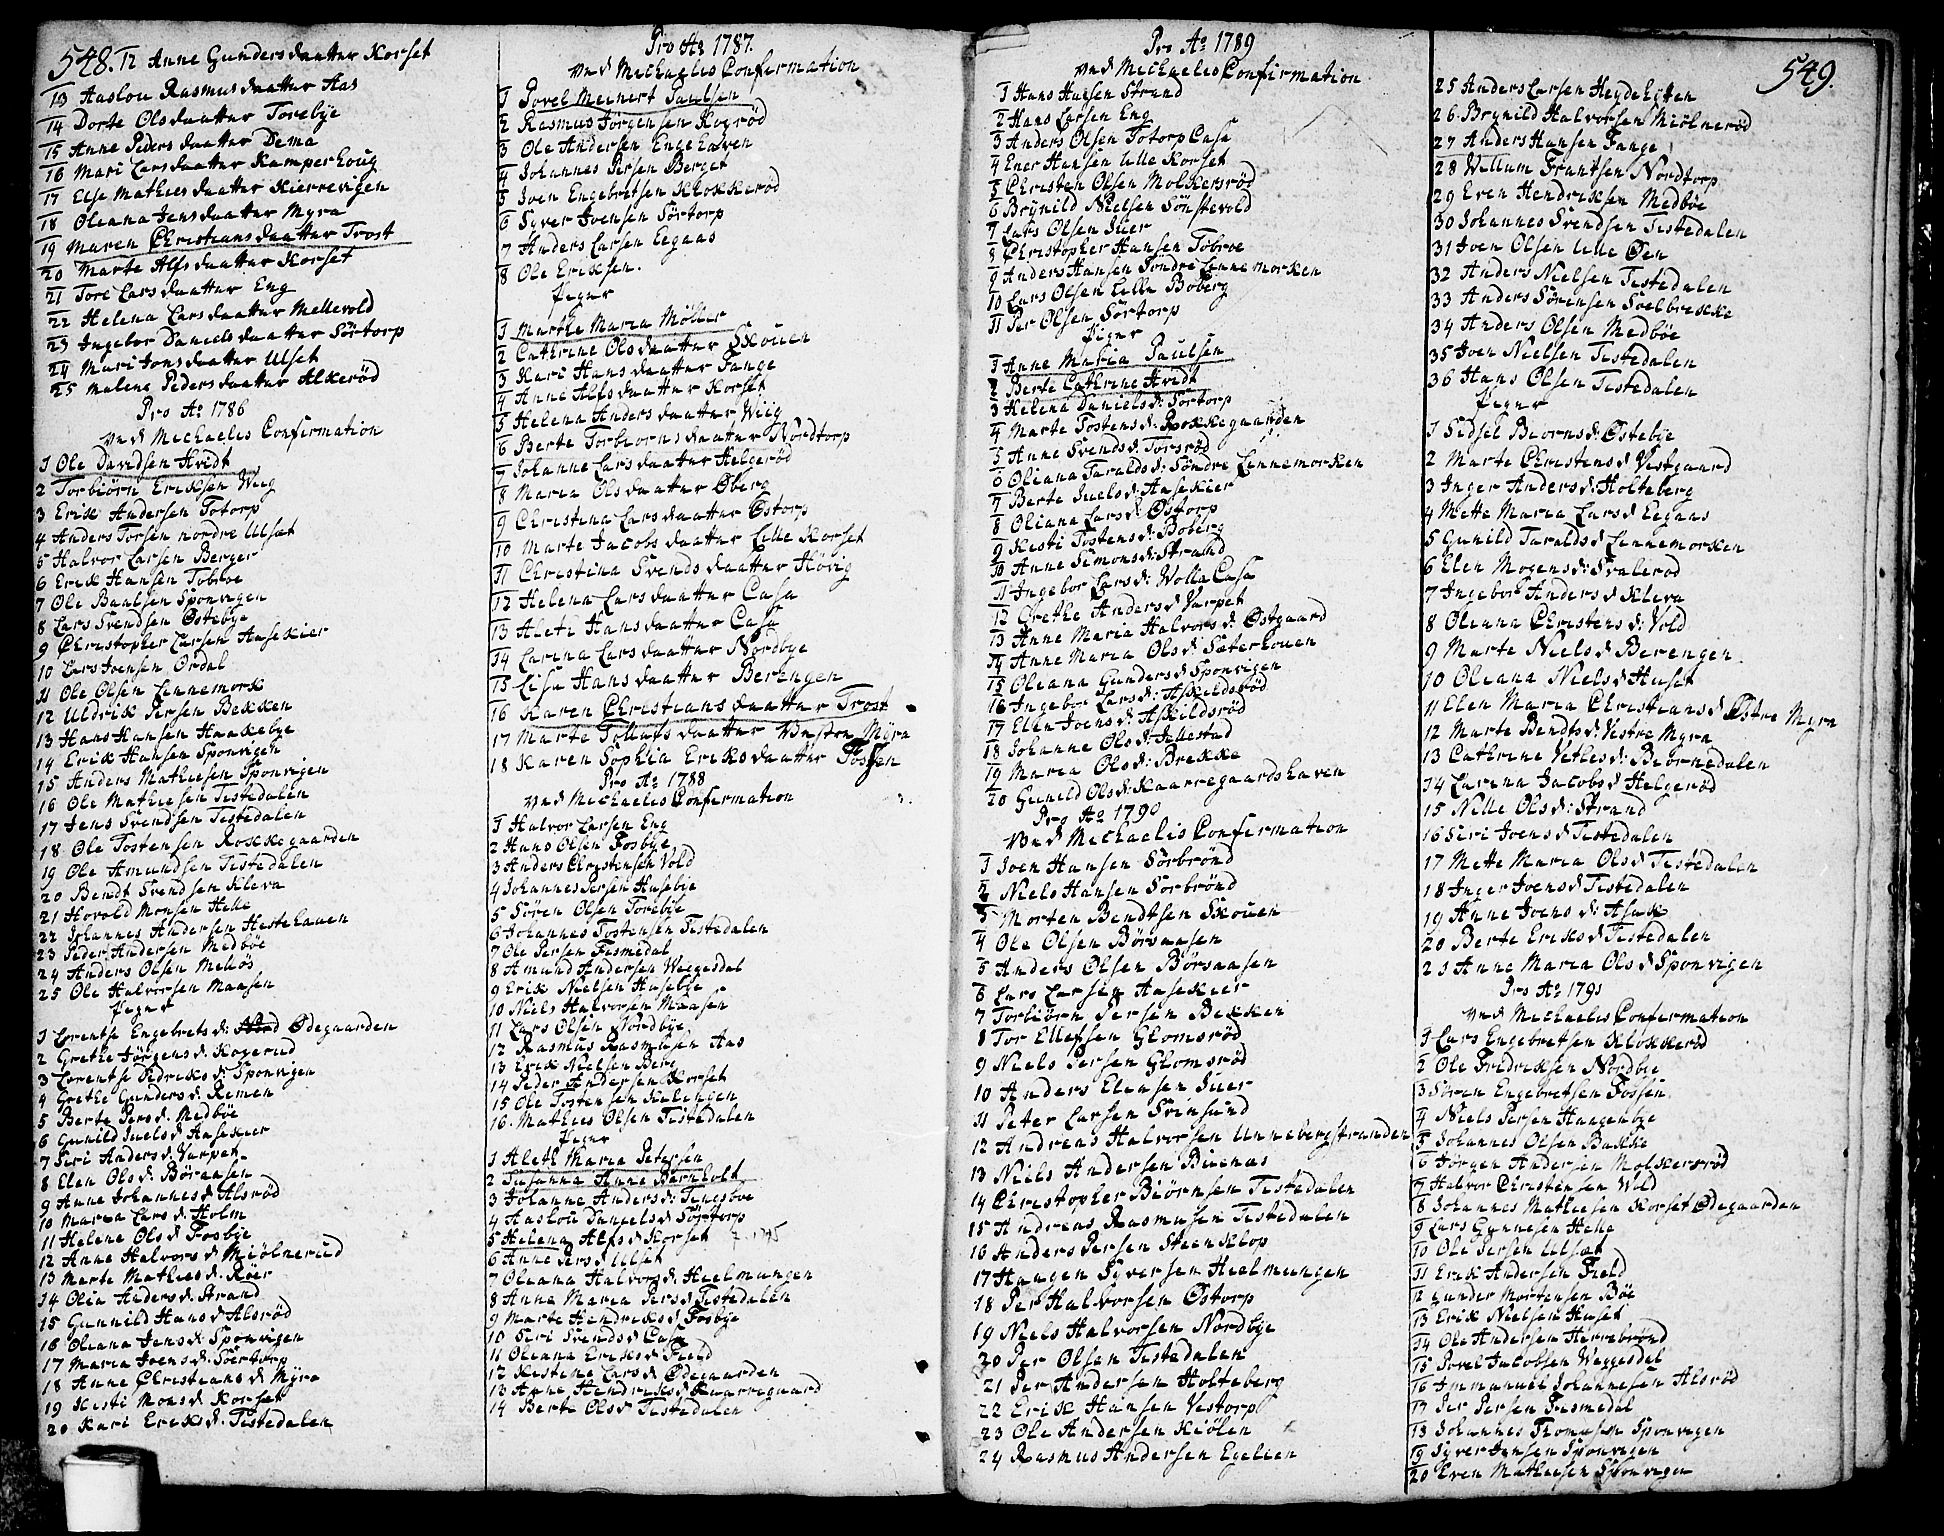 548.
12 Anne Gunders daatter Korset
13 Aaslou Rasmus daatter Aas
14 Dorte Ols daatter Torebye
15 Anne Peders daatter Dema
16 Mari Lars daatter Kamperhoug
17 Else Mathies daatter Kierrevigen
18 Oleana Jens daatter Myra
19 Maren Christians daatter Trost
20 Marte Alfs daatter Korset
21 Tore Lars daatter Eng
22 Helena Lars daatter Mellevold
23 Ingebor Daniels daatter Sörtorp
24 Mari Jons daatter Ulset
25 Malene Peders daatter Alkeröd
Pro Ao 1786
ved Michaelis Confirmation
1 Ole Davidsen Hvidt
2 Torbiörn Eriksen Wiig
3 Erik Andersen Totorp
4 Anders Torsen nordre Ulset
5 Halvor Larsen Berger
6 Erik Hansen Tobroe
7 Ole Baalsen Sponvigen
8 Lars Svendsen Østebye
9 Christopher Larsen Aasekier
10 Lars Joensen Ordal
11 Ole Olsen Lennemork
12 Uldrik Persen Bekken
13 Hans Hansen Haakebye
14 Erik Hansen Sponvigen
15 Anders Mathiesen Sponvigen
16 Ole Mathiesen Tistedalen
17 Jens Svendsen Tistedalen
18 Ole Tostensen Rokkegaarden
19 Ole Amundsen Tistedalen
20 Bendt Svendsen Kleva
21 Horold Monsen Helle
22 Johannes Andersen Hestehauen
23 Peder Andersen Medböe
24 Anders Olsen Meliös
25 Ole Halvorsen Maasen
Piger
1 Lorentse Engebrets d: Ødegaarden
2 Grethe Jörgens d: Kogerud
3 Lorentse Fedriks d: Sponvigen
4 Grethe Gunders d: Remen
5 Berte Pers d: Medböe
6 Gunild Juels d: Aasekier
7 Siri Anders d: Varpet
8 Elen Ols d: Böraasen
9 Anne Johannes d Alsröd
10 Maria Lars d: Holm
11 Helene Ols d: Fosbye
12 Anne Halvors d Miölnerud
13 Marte Mathies d: Röer
14 Olia Anders d: Strand
15 Gunnild Hans d: Alsröd
16 Oleana Jens d: Sponvigen
17 Maria Joens d: Sörtorp
18 Anne Christians d: Myra
19 Kisti Mons d: Korset
20 Kari Eriks d: Tistedalen
Pro Ao 1787.
ved Michaelis Confirmation
1 Povel Meinert Paulsen
2 Rasmus Jörgensen Kogröd
3 Ole Andersen Engehaven
4 Johannes Persen Berget
5 Joen Engebretsen Klokkeröd
6 Syver Joensen Sörtorp
7 Anders Larsen Eegaas
8 Ole Eriksen.
Piger
1 Marthe Maria Möller
2 Cathrine Ols daatter Skouen
3 Kari Hans daatter Fange
4 Anne Alfs daatter Korset
5 Helena Anders daatter Wiig
6 Berte Torbiorns daatter Nordtorp
7 Johanne Lars daatter Helgeröd
8 Maria Ols daatter Øberg
9 Christina Lars daatter Østorp
10 Marte Jacobs daatter Lille Korset
11 Christina Svends daatter Hövig
12 Helena Lars daatter Casa
13 Aleti Hans daatter Casa
14 Larina Lars daatter Nordbye
15 Lisa Hans daatter Beringen
16 Karen Christians daatter Trost
17 Marte Tollufs daatter Myra
18 Karen Sophia Eriks daatter Fossen
Pro Ao 1788
ved Michaelis Confirmation
1 Halvor Larsen Eng
2 Hans Olsen Fosbye
3 Anders Christensen Vold
4 Johannes Persen Husebye
5 Sören Olsen Torebye
6 Johannes Tostensen Tistedalen
7 Ole Persen Fismedal
8 Amund Andersen Weggesdal
9 Erik Nielsen Husebye
10 Niels Halvorsen Maasen
11 Lars Olsen Nordbye
12 Rasmus Rasmusen Aas
13 Erik Nielsen Berg
14 Peder Andersen Korset
15 Ole Tostensen Kulingen
16. Mathies Olsen Tistedalen
Piger
1 Aleth Maria Petersen
2 Susanna Anna Bernholt
3 Johanne Anders d: Tingsboe
4 Aaslou Daniels d: Sörtorp
5 Helena Alfs d: Korset
6 Anne Pers d Ulset
7 Oleana Halvors d: Hielmungen
8 Anne Maria Pers d Tistedalen
9 Marte Hendriks d Fosbye
10 Siri Svends d Casa
11 Oleana Eriks d: Field
12 Kistene Lars d: Ødegaarden
13 Anne Hendriks d Kaarregaard
14 Berte Ols d Tistedalen
Pro Ao 1789
ved Michaelis Confirmation
1 Hans Hansen Strand
2 Hans Larsen Eng
3 Anders Olsen Totorp Casa
4 Ener Hansen Lille Korset
5 Christen Olsen Molkersröd
6 Brynild Nielsen Sönstevold
7 Lars Olsen Juer
8 Christopher Hansen Tobroe
9 Anders Hansen Söndre Lennemorken
10 Lars Olsen Lille Boberg
11 Per Olsen Sörtorp
Piger
1 Anne Maria Paulsen
2 Berte Cathrine Hvidt
3 Helena Daniels d: Sörtorp
4 Marte Tostens d: Rokkegaarden
5 Anne Svends d: Torsröd
6 Oliana Taralds d: Söndre Lennemorken
7 Berte Juels d: Aasekier
8 Oliana Lars d: Østorp
9 Kisti Tostens d: Boberg
10 Anne Simons d: Strand
11 Ingebor Lars d: Volla Casa
12 Grethe Anders d Varpet
13 Anne Maria Halvors d: Østgaard
14 Anne Maria Ols d Sæterhouen
15 Oleana Gunders d Sponvigen
16 Ingebor Lars d: Askildsröd
17 Ellen Joens d: Askildsröd
18 Johanne Ols d: Jellestad
19 Maria Ols d: Brekke
20 Gunild Ols d: Kaarregaardshaven
Pro Ao 1790
Ved Michaelis Confirmation
1 Joen Hansen Sörbrönd
2 Niels Hansen Sorbrönd
3 Morten Bendtsen Skouen
4 Ole Olsen Börsaasen
5 Anders Olsen Börsaasen
6 Lars Larsen Aasekier
7 Torbiörn Persen Bekken
8 Tor Ellefsen Glomsröd
9 Niels Persen Glomsröd
10 Anders Elensen Juer
11 Peter Larsen Svinsund
12 Andreas Halvorsen Unnebergstranden
13 Niels Andersen Buenas
14 Christopher Biörnsen Tistedalen
15 Andreas Rasmusen Tistedalen
16 Anders Persen Steenklop
17 Haagen Syversen Hielmungen
18 Per Halvorsen Østorp
19 Niels Halvorsen Nordbye
20 Per Olsen Tistedalen
21 Per Andersen Holteberg
22 Erik Hansen Vestorp
23 Ole Andersen Kiölen
24 Rasmus Andersen Egelien
549.
25 Anders Larsen Heydehiten
26 Brynild Halvorsen Miölneröd
27 Anders Hansen Fange
28 Willum Frantsen Nordtorp
29 Even Hendriksen Medböe
30 Johannes Svendsen Tistedalen
31 Joen Olsen Lille Øen
32 Anders Nielsen Tistedalen
33 Anders Sörensen Soelbrekke
34 Anders Olsen Medböe
35 Joen Nielsen Tistedalen
36 Hans Olsen Tistedalen
Piger
1 Sidsel Beorns d: Østebye
2 Marte Christens d Vestgaard
3 Inger Anders d: Holteberg
4 Mette Maria Lars d Eegaas
5 Gunild Taralds d Lennemorken
6 Elen Mogens d: Svalerod
7 Ingebor Anders d Kleva
8 Oleana Christens d: Vold
9 Marte Niels d Berengen
10 Oleana Niels d Huset
11 Elen Maria Christians d Østre Myra
12 Marte Bendts d: Vestre Myra
13 Cathrine Vetles d: Beörnedalen
14 Larina Jacobs d Helgeröd
15 Nille Ols d: Strand
16 Siri Joens d Tistedalen
17 Mette Maria Ols d Tistedalen
18 Inger Joens d Tistedalen
19 Anne Joens d: Asak
20 Berte Eriks d Tistedalen
21 Anne Maria Ols d Sponvigen
Pro Ao 1791
ved Michaelis Confirmation
1 Lars Engebretsen Klokkeröd
2 Ole Fredriksen Nordbye
3 Sören Engebretsen Fossen
4 Niels Persen Haagenbye
5 Johannes Olsen Bakke
6 Jörgen Andersen Molkersröd
7 Halvor Christensen Vold
8 Johannes Mathiesen Korset Ødegaarden
9 Lars Gynnesen Helle
10 Ole Persen Ulset
11 Erik Andersen Field
12 Gunder Mortensen Böe
13 Erik Nielsen Huset
14 Ole Andersen Herrebrönd
15 Povel Jacobsen Weggesdal
16 Immanuel Johannesen Alsröd
17 Per Persen Fismedal
18 Johannes Thomasen Sponvigen
19 Syver Jensen Sponvigen
20 Even Mathiesen Sponvigen